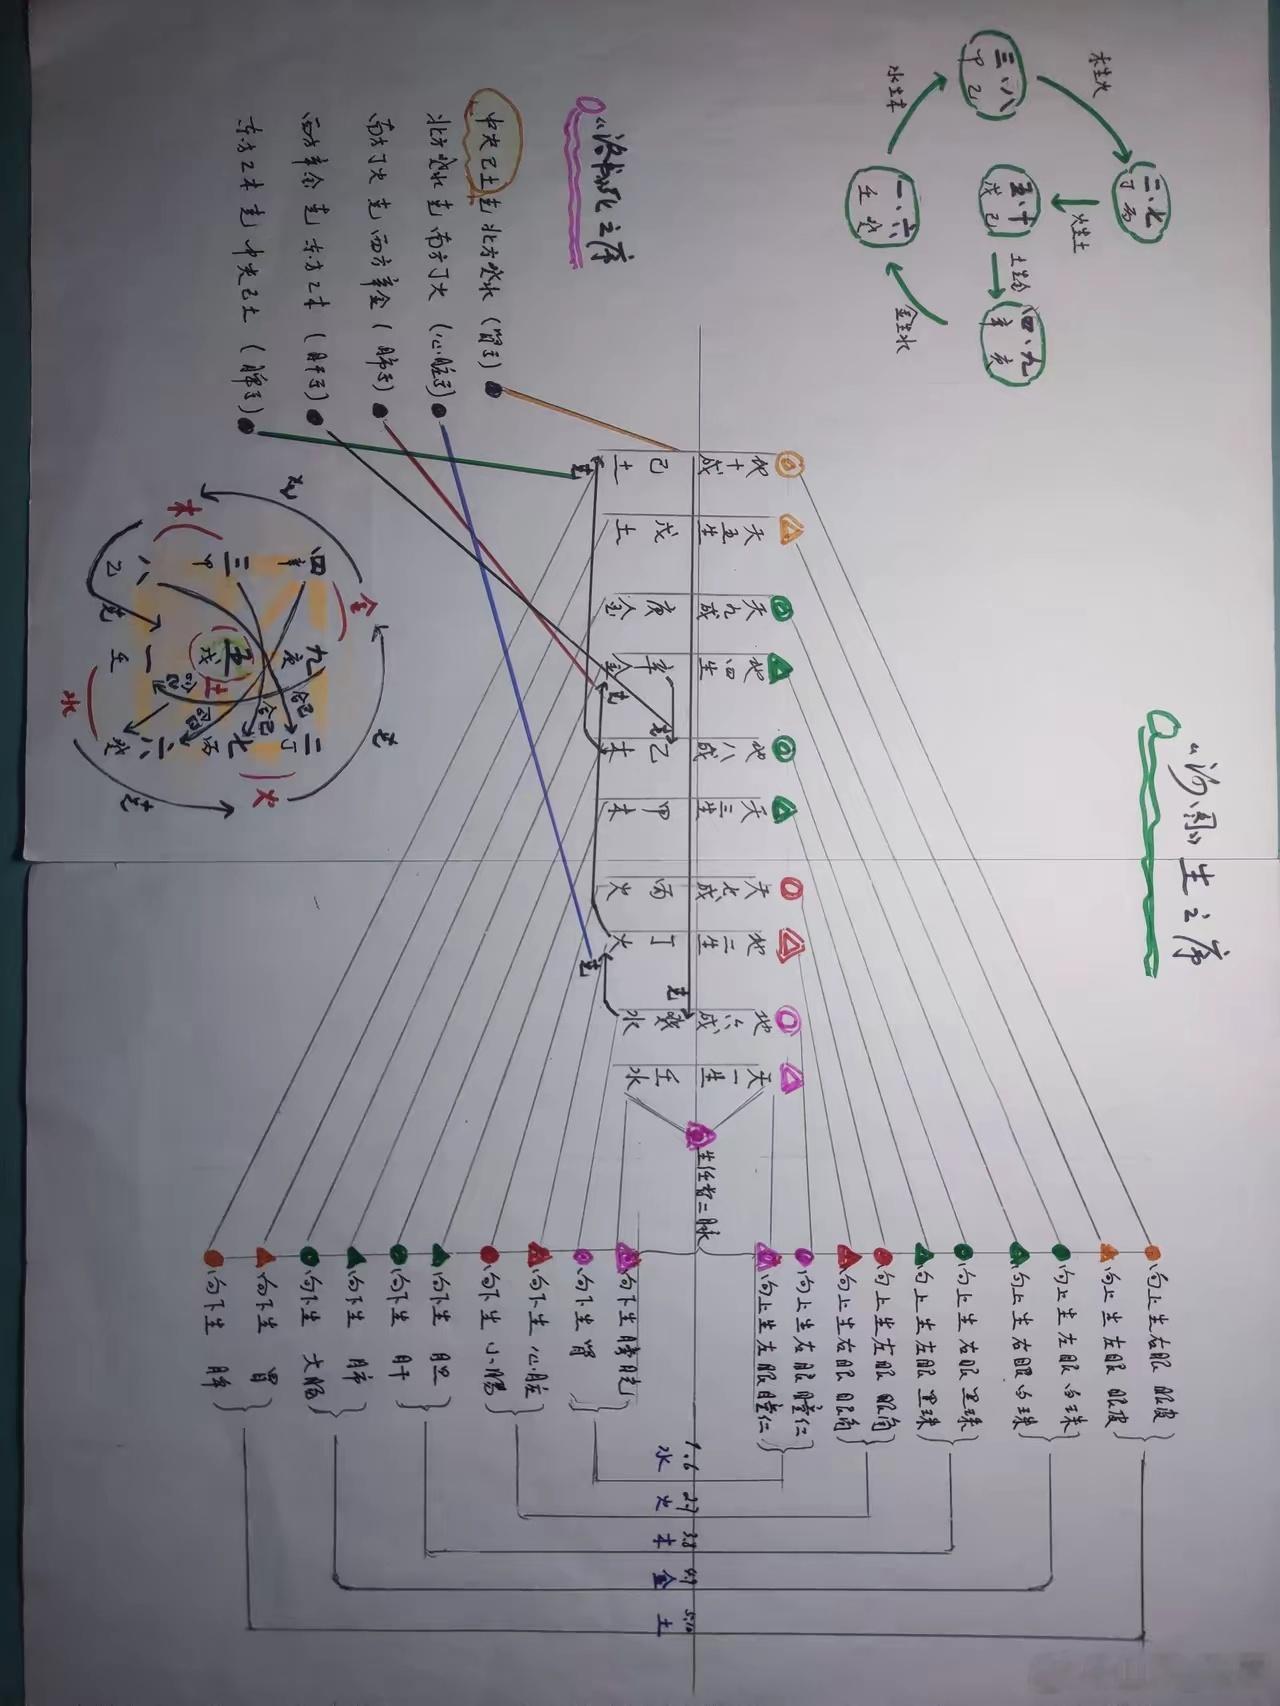 《河图》生之序
三、八
甲 乙
木生火
二、七
丁 丙
火生土
五、十
戊 己
土生金
四、九
辛 庚
金生水
一、六
壬 癸
水生木
《洛书》死之序
中央己土克北方癸水（肾字）
北方癸水克南方丁火（心脏字）
南方丁火克西方辛金（肺字）
西方辛金克东方乙木（肝字）
东方乙木克中央己土（脾字）
地十成 己 土
天五生 戊 土
天九成 庚 金
地四生 辛 金
地八成 乙 木
天三生 甲 木
天七成 丙 火
地二生 丁 火
地六成 癸 水
天一生 壬 水
克
克
克
克
克
生任督二脉
四 九 二
辛 庚 丁
三 五 七
甲 戊 丙
八 一 六
乙 壬 癸
金
木
水
火
土
克
克
克
克
合己
合己
向上生右眼眼皮
向上生左眼眼皮
向上生左眼白珠
向上生右眼白珠
向上生右眼黑珠
向上生左眼黑珠
向上生左眼眼角
向上生右眼眼角
向上生右眼瞳仁
向上生左眼瞳仁
向下生膀胱
向下生肾
向下生心脏
向下生小肠
向下生胆
向下生肝
向下生肺
向下生大肠
向下生胃
向下生脾
1.6 水
2.7 火
3.8 木
4.9 金
5.10 土